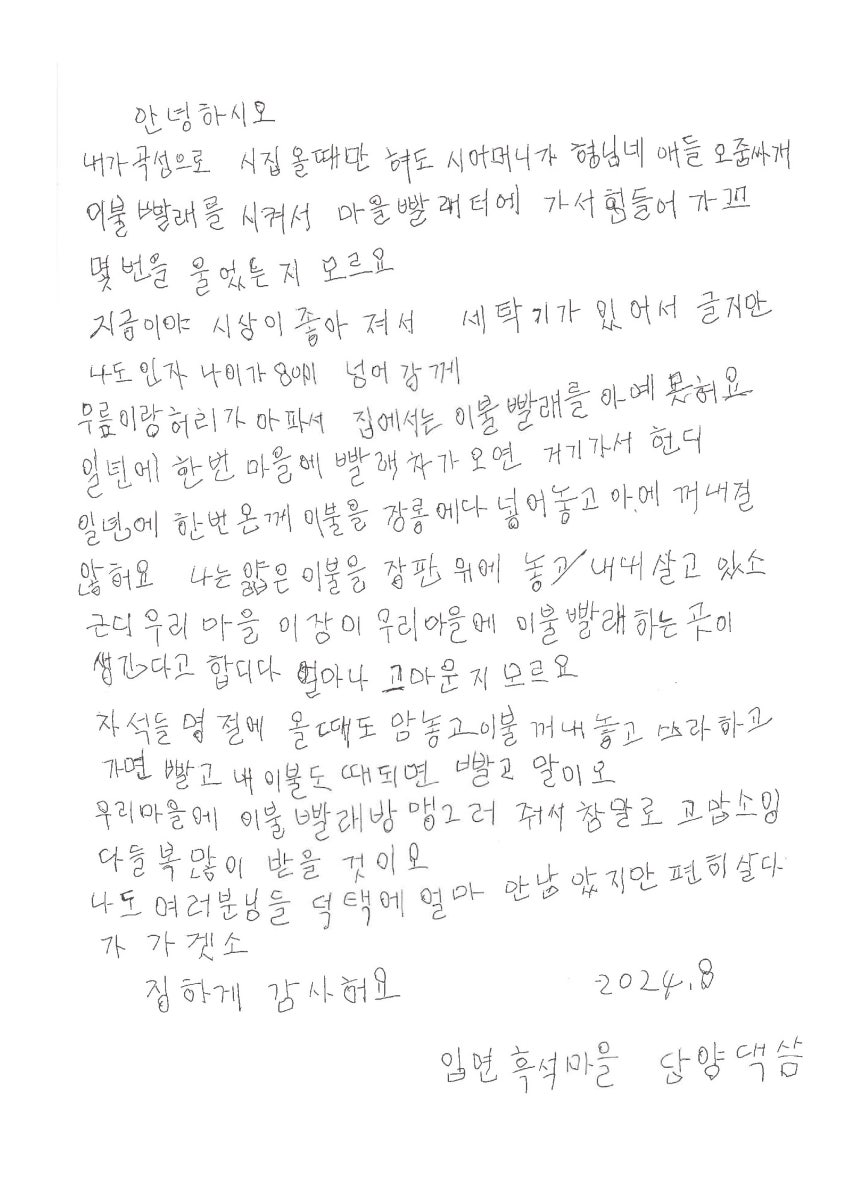 안녕하시오
내가 곡성으로 시집 올때만 혀도 시어머니가 형님네 애들 오줌싸게
이불 빨래를 시켜서 마을빨래터에 가서 힘들어 가꼬
몇번을 울었는지 모르요
지금이야 시상이 좋아 져서 세탁기가 있어서 글지만
나도 인자 나이가 80이 넘어 강께
무릎이랑 허리가 아파서 집에서는 이불빨래를 아예 못혀요
일년에 한번 마을에 빨래차가 오면 거기가서 헌디
일년에 한번 온께 이불을 장롱에다 넣어놓고 아에 꺼내질
않허요 나는 얇은 이불을 잡판 위에 놓고 내내 살고 있소
근디 우리 마을 이장이 우리마을에 이불빨래하는 곳이
생긴다고 합디다 얼마나 고마운지 모르요
자석들 명절에 올때도 암놓고 이불 꺼내 놓고 쓰라 하고
가면 빨고 내 이불도 때되면 빨고 말이오
우리마을에 이불빨래방 맹그러 줘서 참말로 고맙소잉
다들 복 많이 받을 것이오
나도 여러분님들 덕택에 얼마 안남았지만 편히 살다
가 가겟소
집하게 감사혀요 2024.8
입면 흑석마을 담양댁 씀